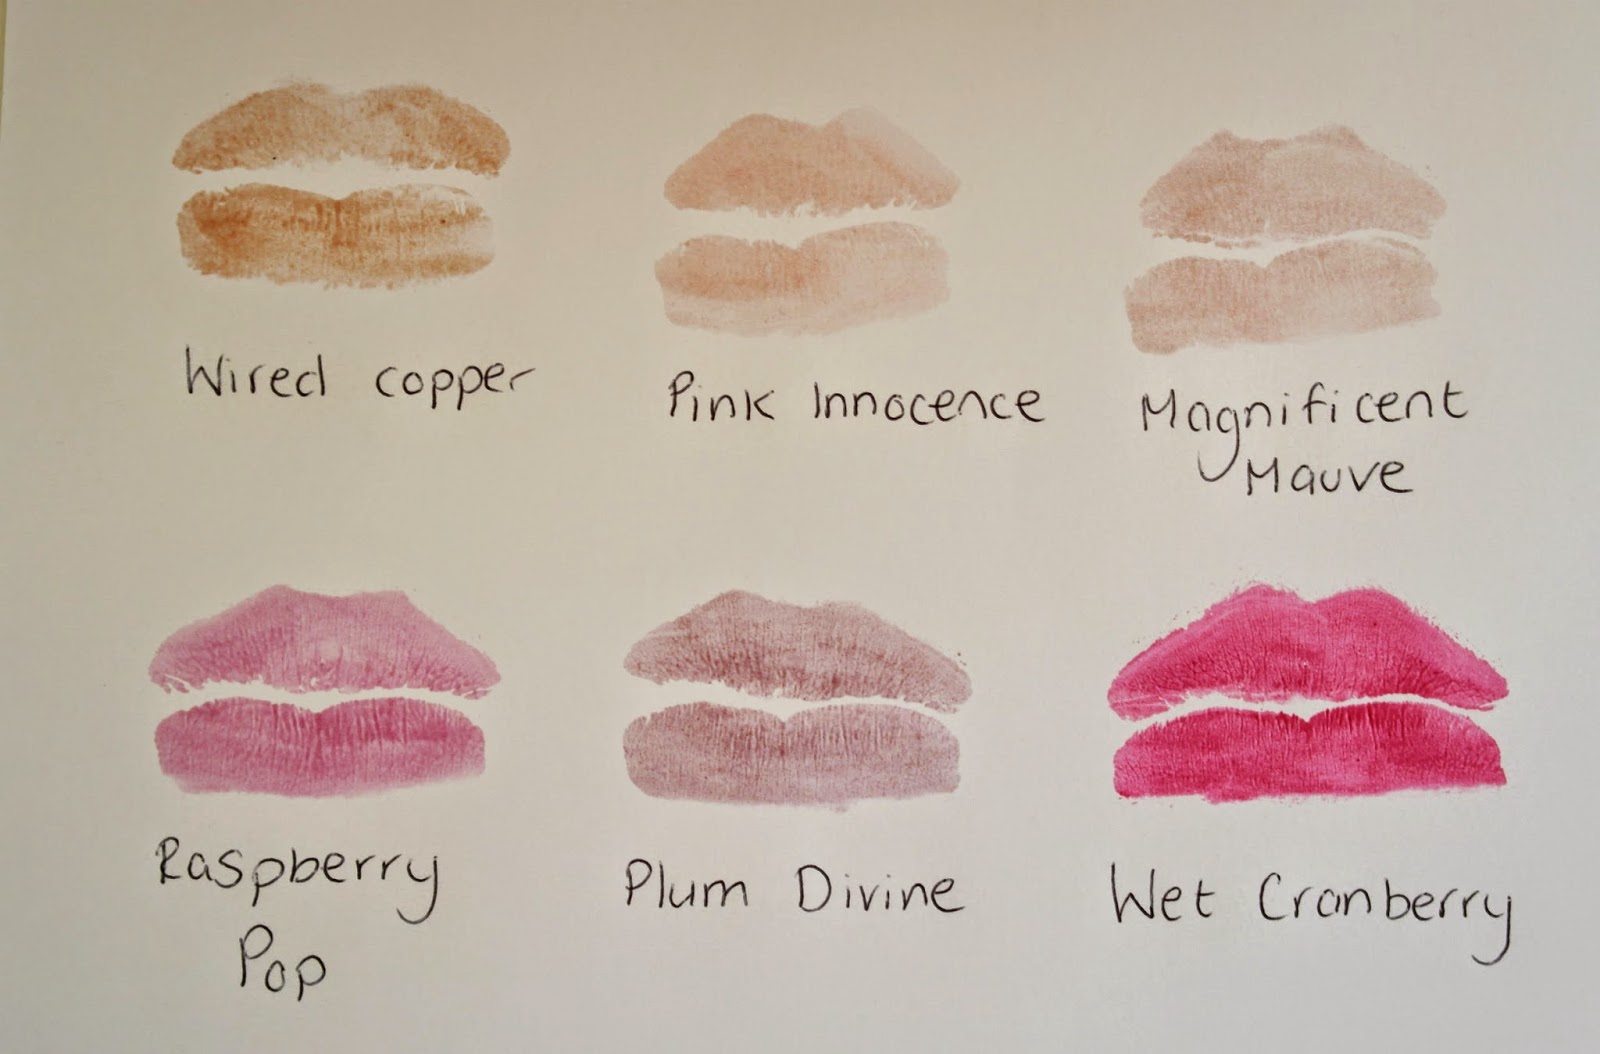 Wired copper
Pink Innocence
Magnificent
Mauve
Raspberry
Pop
Plum Divine
Wet Cranberry